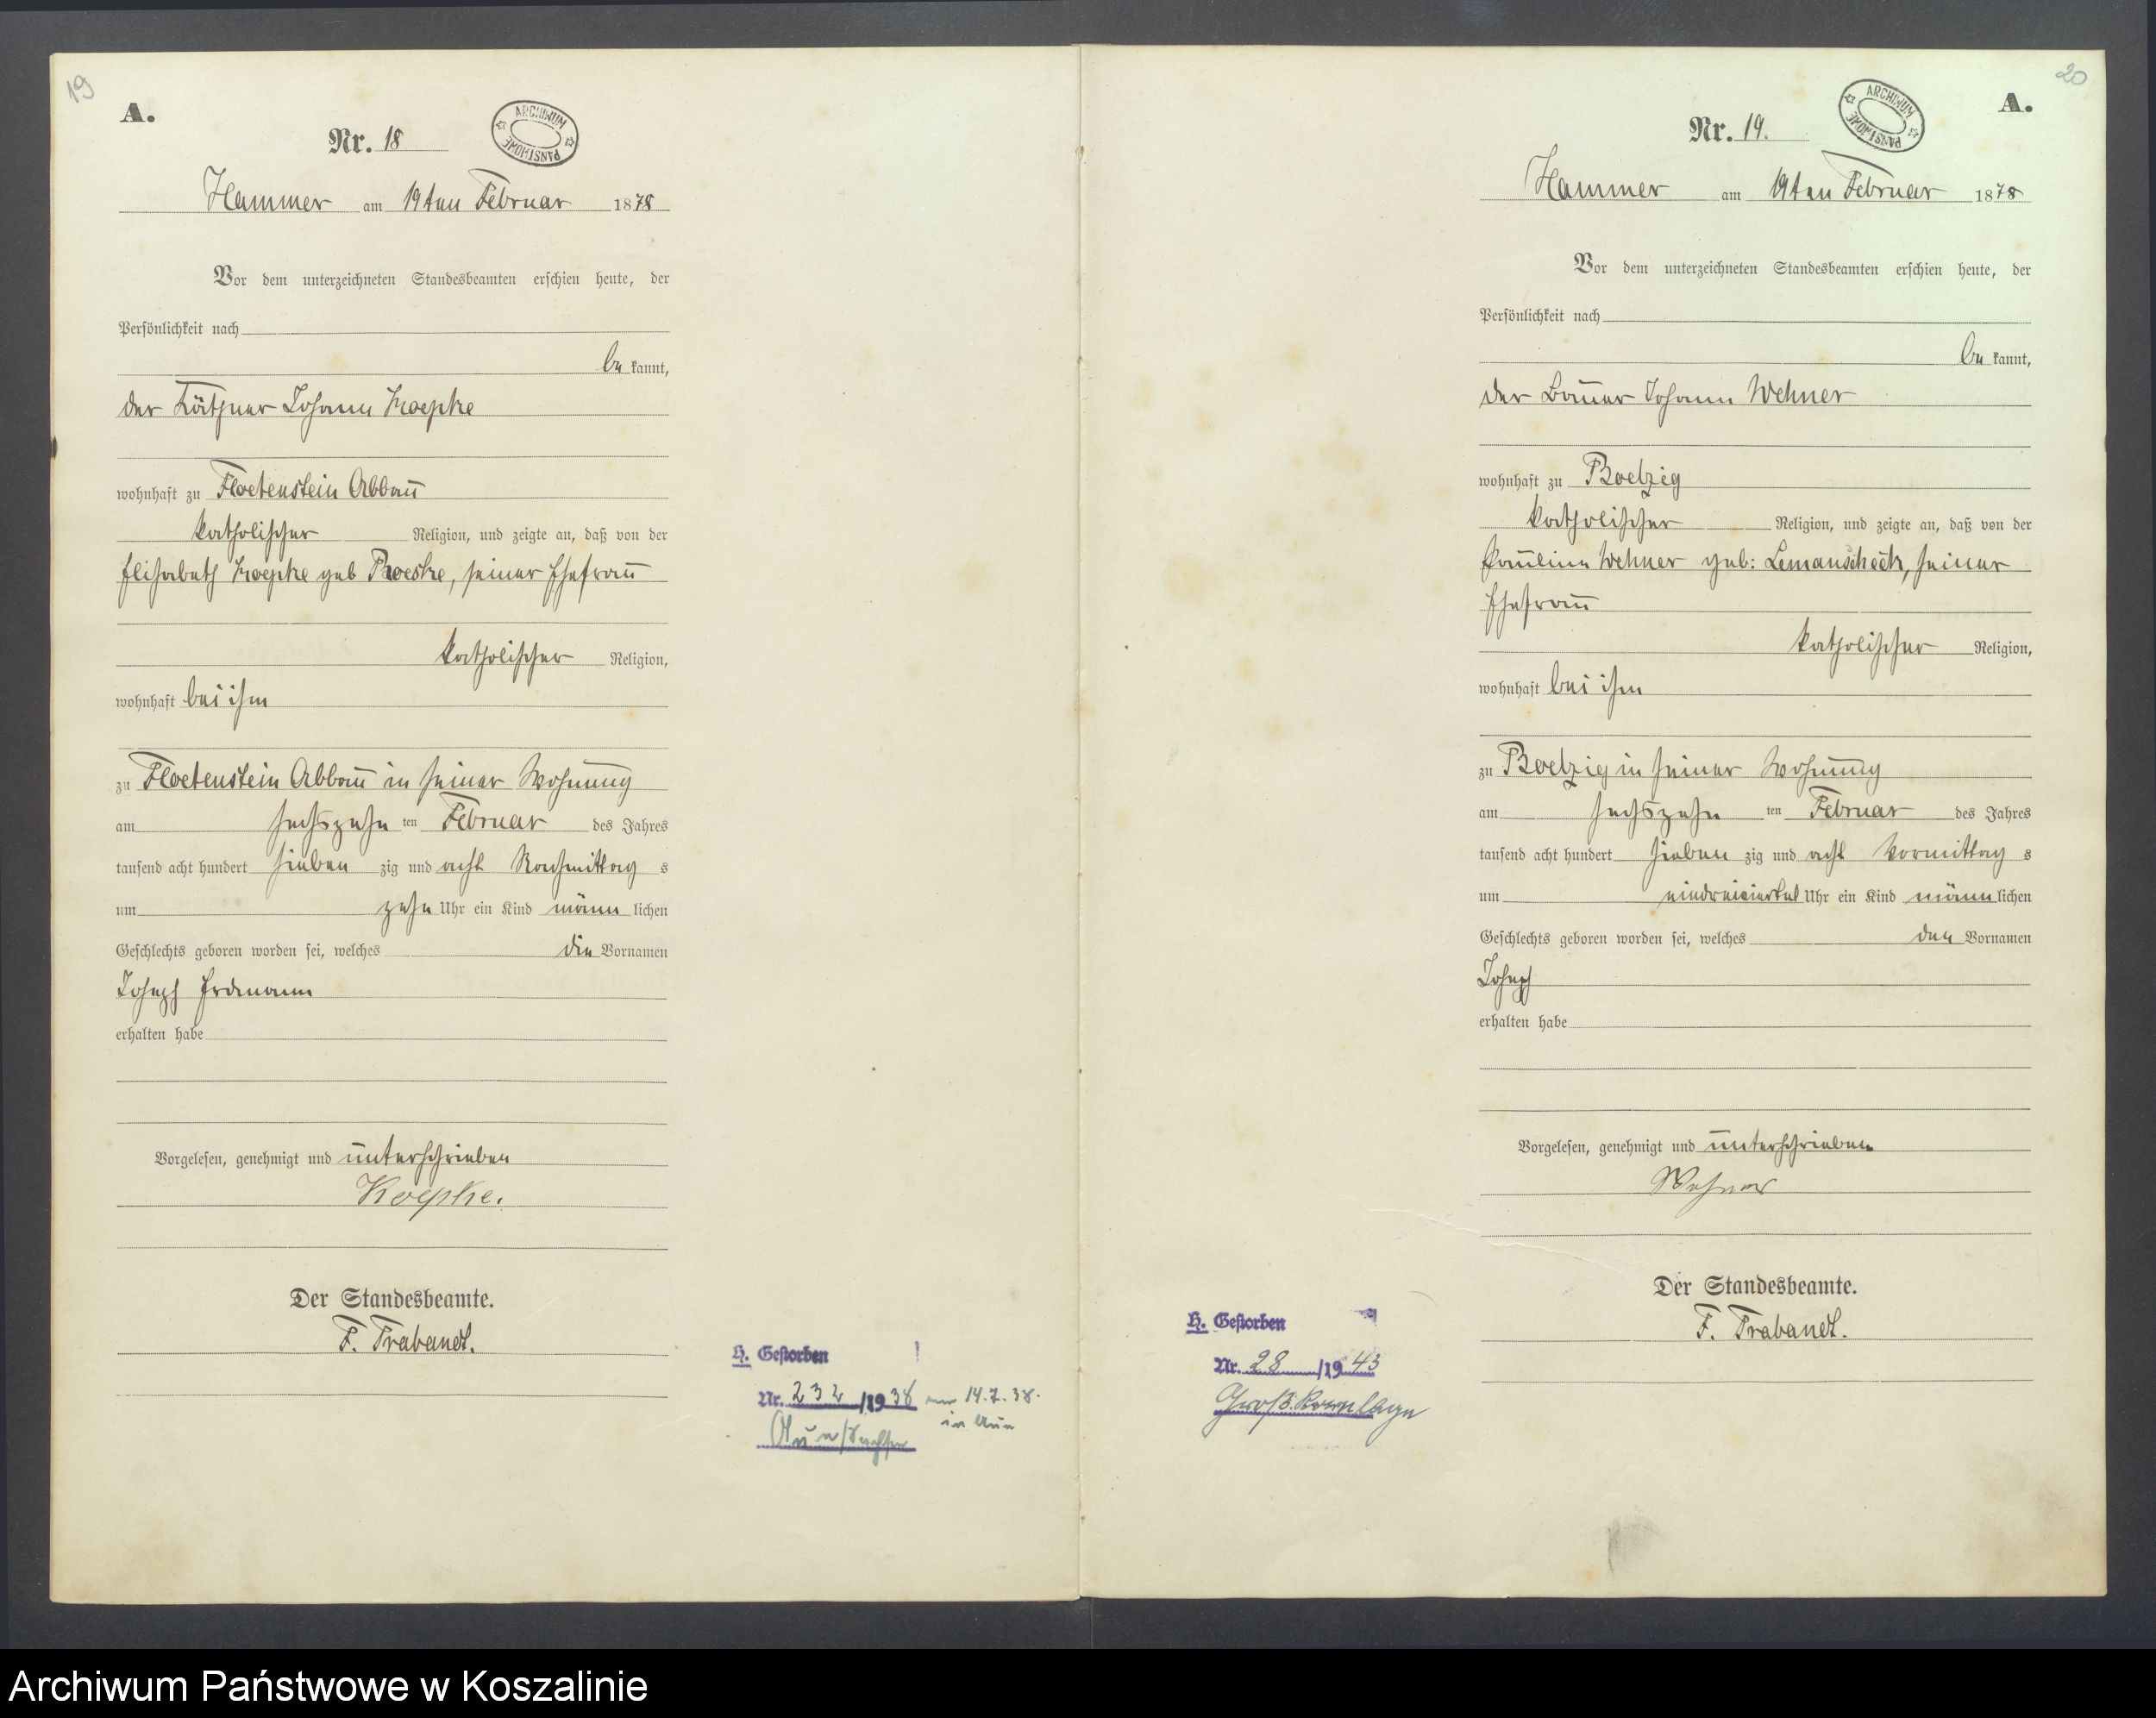 19
A.
ARCHIWUM PAŃSTWOWE
Nr. 18
Hammer am 19ten Februar 1878
Vor dem unterzeichneten Standesbeamten erschien heute, der
Persönlichkeit nach
be kannt,
der Käthner Johann Koepke
wohnhaft zu Floetenstein Abbau
katholischer Religion, und zeigte an, daß von der
Elisabeth Koepke geb Proeske, seiner Ehefrau
katholischer Religion,
wohnhaft bei ihm
zu Floetenstein Abbau in seiner Wohnung
am sechszehn ten Februar des Jahres
tausend acht hundert sieben zig und acht Nachmittag s
um zehn Uhr ein Kind männ lichen
Geschlechts geboren worden sei, welches die Vornamen
Joseph Erdmann
erhalten habe
Vorgelesen, genehmigt und unterschrieben
Koepke.
Der Standesbeamte.
F. Trabandt.
H. Gestorben
Nr. 232 /1938 am 14.7.38.
in Aue
Aue/Sachsen
20
A.
ARCHIWUM PAŃSTWOWE
Nr. 19.
Hammer am 19ten Februar 1878
Vor dem unterzeichneten Standesbeamten erschien heute, der
Persönlichkeit nach
be kannt,
der Bauer Johann Wehner
wohnhaft zu Boelzig
katholischer Religion, und zeigte an, daß von der
Pauline Wehner geb: Lemanscheck, seiner
Ehefrau
katholischer Religion,
wohnhaft bei ihm
zu Boelzig in seiner Wohnung
am sechszehn ten Februar des Jahres
tausend acht hundert sieben zig und acht Vormittag s
um eindreiviertel Uhr ein Kind männ lichen
Geschlechts geboren worden sei, welches den Vornamen
Joseph
erhalten habe
Vorgelesen, genehmigt und unterschrieben
Wehner
Der Standesbeamte.
F. Trabandt.
H. Gestorben
Nr. 28 /1943
Archiwum Państwowe w Koszalinie